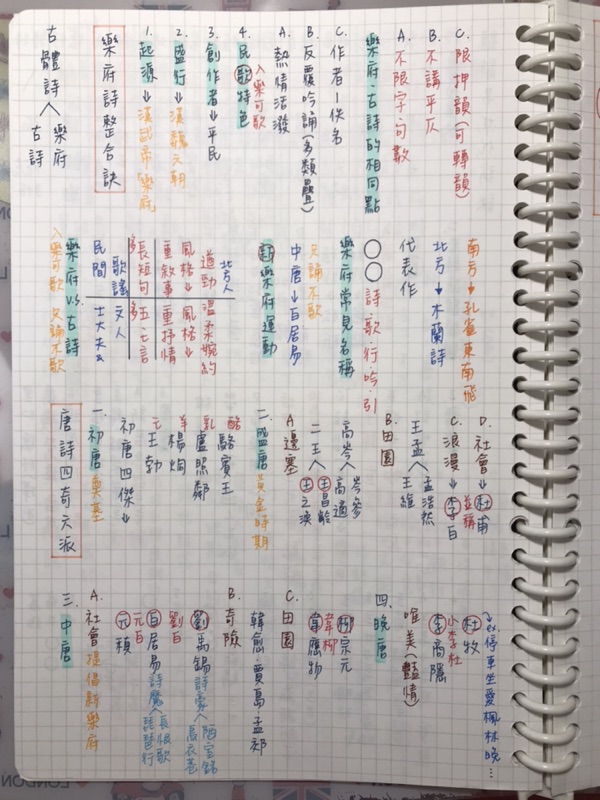 古體詩
樂府
古詩
樂府詩整合訣
1.起源→漢武帝「樂府」
2.盛行→漢魏六朝
3.創作者→平民
4.民歌特色
入樂可歌
A.熱情活潑
B.反覆吟誦(多類疊)
C.作者—佚名
樂府.古詩的相同點
A.不限字句數
B.不講平仄
C.限押韻(可轉韻)
入樂可歌 只誦不歌
樂府v.s.古詩
民間 士大夫
歌謠 文人
多長短句 多五.七言
重敘事 重抒情
風格→ 風格→
遒勁 溫柔婉約
北方人
新樂府運動
中唐→白居易
只誦不歌
樂府常見名稱
○○詩.歌.行.吟.引
代表作
北方→木蘭詩
南方→孔雀東南飛
唐詩四奇六派
一.初唐 奠基
初唐四傑→
王勃
羊
楊炯
乳
盧照鄰
酪
駱賓王
二.盛唐 黃金時期
A邊塞
二王
王昌齡
王之渙
高岑
岑參
高適
B.田園
王孟
孟浩然
王維
C.浪漫→李白
並稱
D.社會→杜甫
三.中唐
A.社會 提倡新樂府
元稹
元白
白居易 詩魔
長恨歌
琵琶行
劉白
劉禹錫 詩豪
陋室銘
烏衣巷
B.奇險
韓愈.賈島.孟郊
C.田園
韋應物
韋柳
柳宗元
四.晚唐
唯美(豔情)
李商隱
小李杜
杜牧
停車坐愛楓林晚…